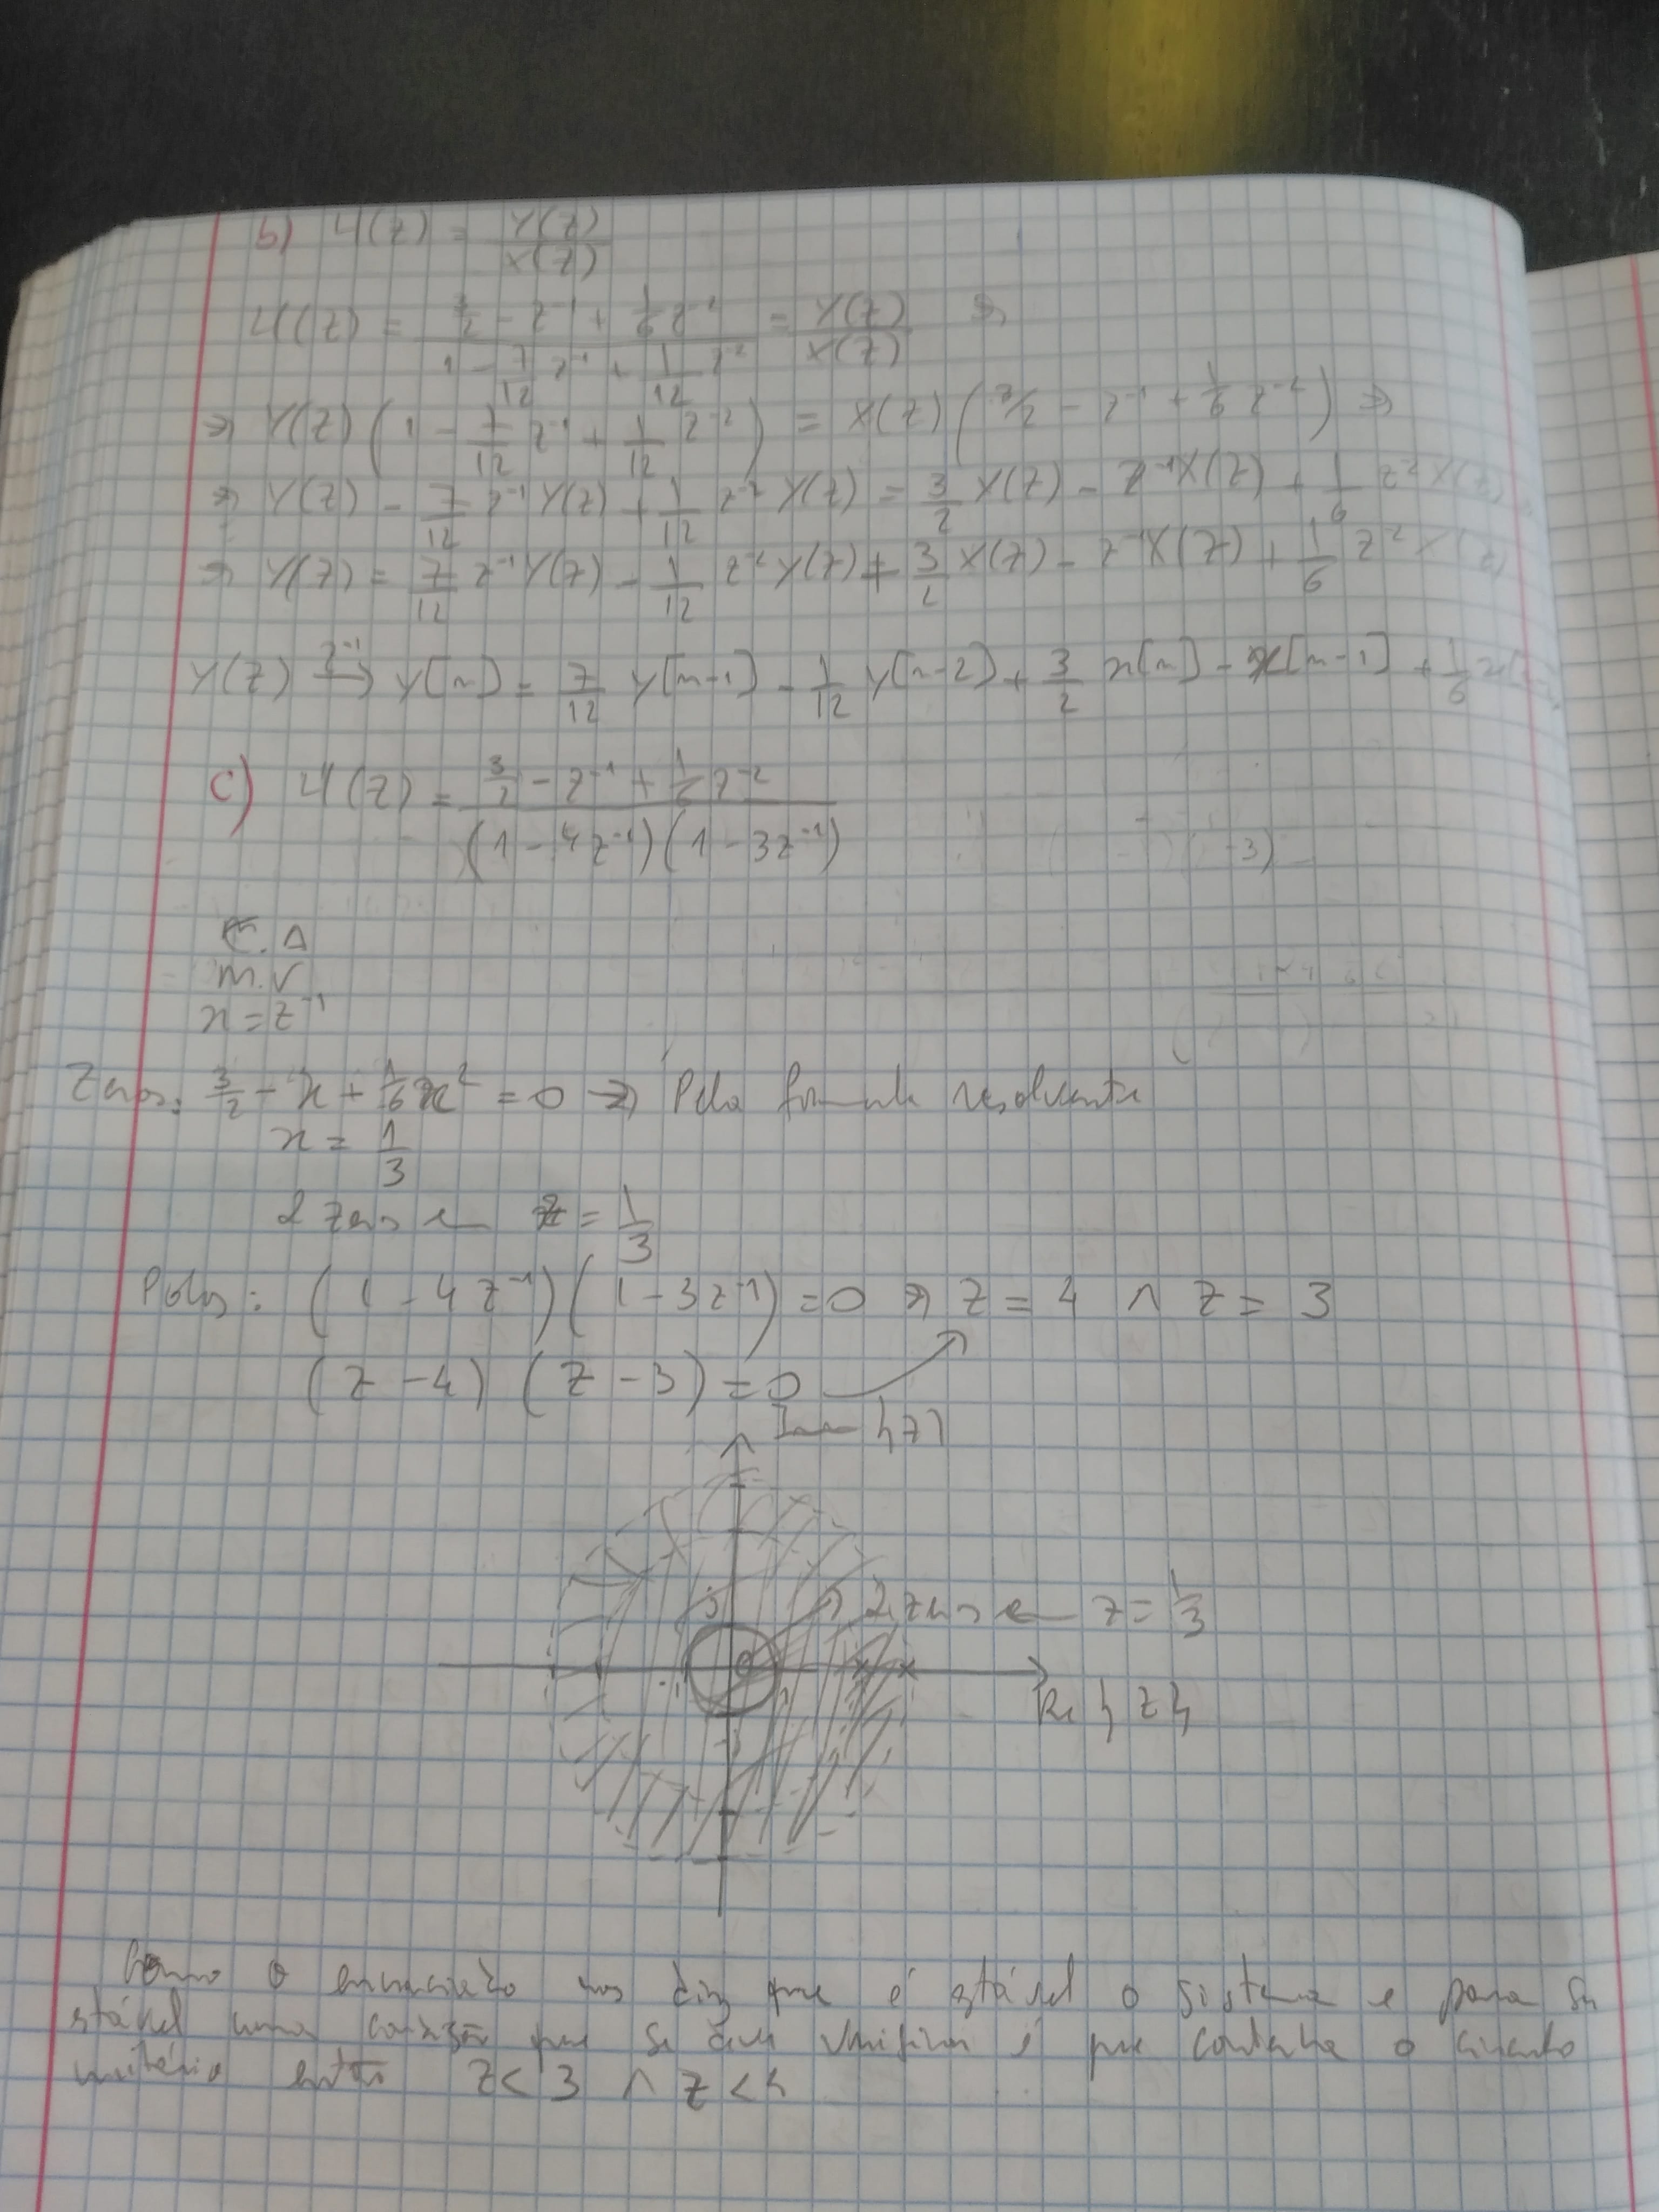 b) H(z) = Y(z)/X(z)
H(z) = (3/2 - z⁻¹ + 1/6 z⁻²)/(1 - 7/12 z⁻¹ + 1/12 z⁻²) = Y(z)/X(z) ⇒
⇒ Y(z) (1 - 7/12 z⁻¹ + 1/12 z⁻²) = X(z) (3/2 - z⁻¹ + 1/6 z⁻²) ⇒
⇒ Y(z) - 7/12 z⁻¹ Y(z) + 1/12 z⁻² Y(z) = 3/2 X(z) - z⁻¹X(z) + 1/6 z⁻² X(z)
⇒ Y(z) = 7/12 z⁻¹Y(z) - 1/12 z⁻² Y(z) + 3/2 X(z) - z⁻¹X(z) + 1/6 z⁻² X(z)
Y(z) Z⁻¹→ y[n] = 7/12 y[n-1] - 1/12 y[n-2] + 3/2 x[n] - x[n-1] + 1/6 x[
c) H(z) = (3/2 - z⁻¹ + 1/6 z⁻²)/((1 - 4z⁻¹)(1 - 3z⁻¹))
C.A
M.V
x = z⁻¹
Zeros: 3/2 - x + 1/6 x² = 0 ⇒ Pela fórmula resolvente
x = 1/3
2 zeros em z = 1/3
Polos: (1 - 4z⁻¹)(1 - 3z⁻¹) = 0 ⇒ z = 4 ∧ z = 3
(z - 4) (z - 3) = 0
Im {z}
2 zeros em z = 1/3
Re {z}
Como o enunciado nos diz que é estável o sistema e para ser
estável uma condição que se deve verificar é que contenha o círculo
unitário então z < 3 ∧ z < 4